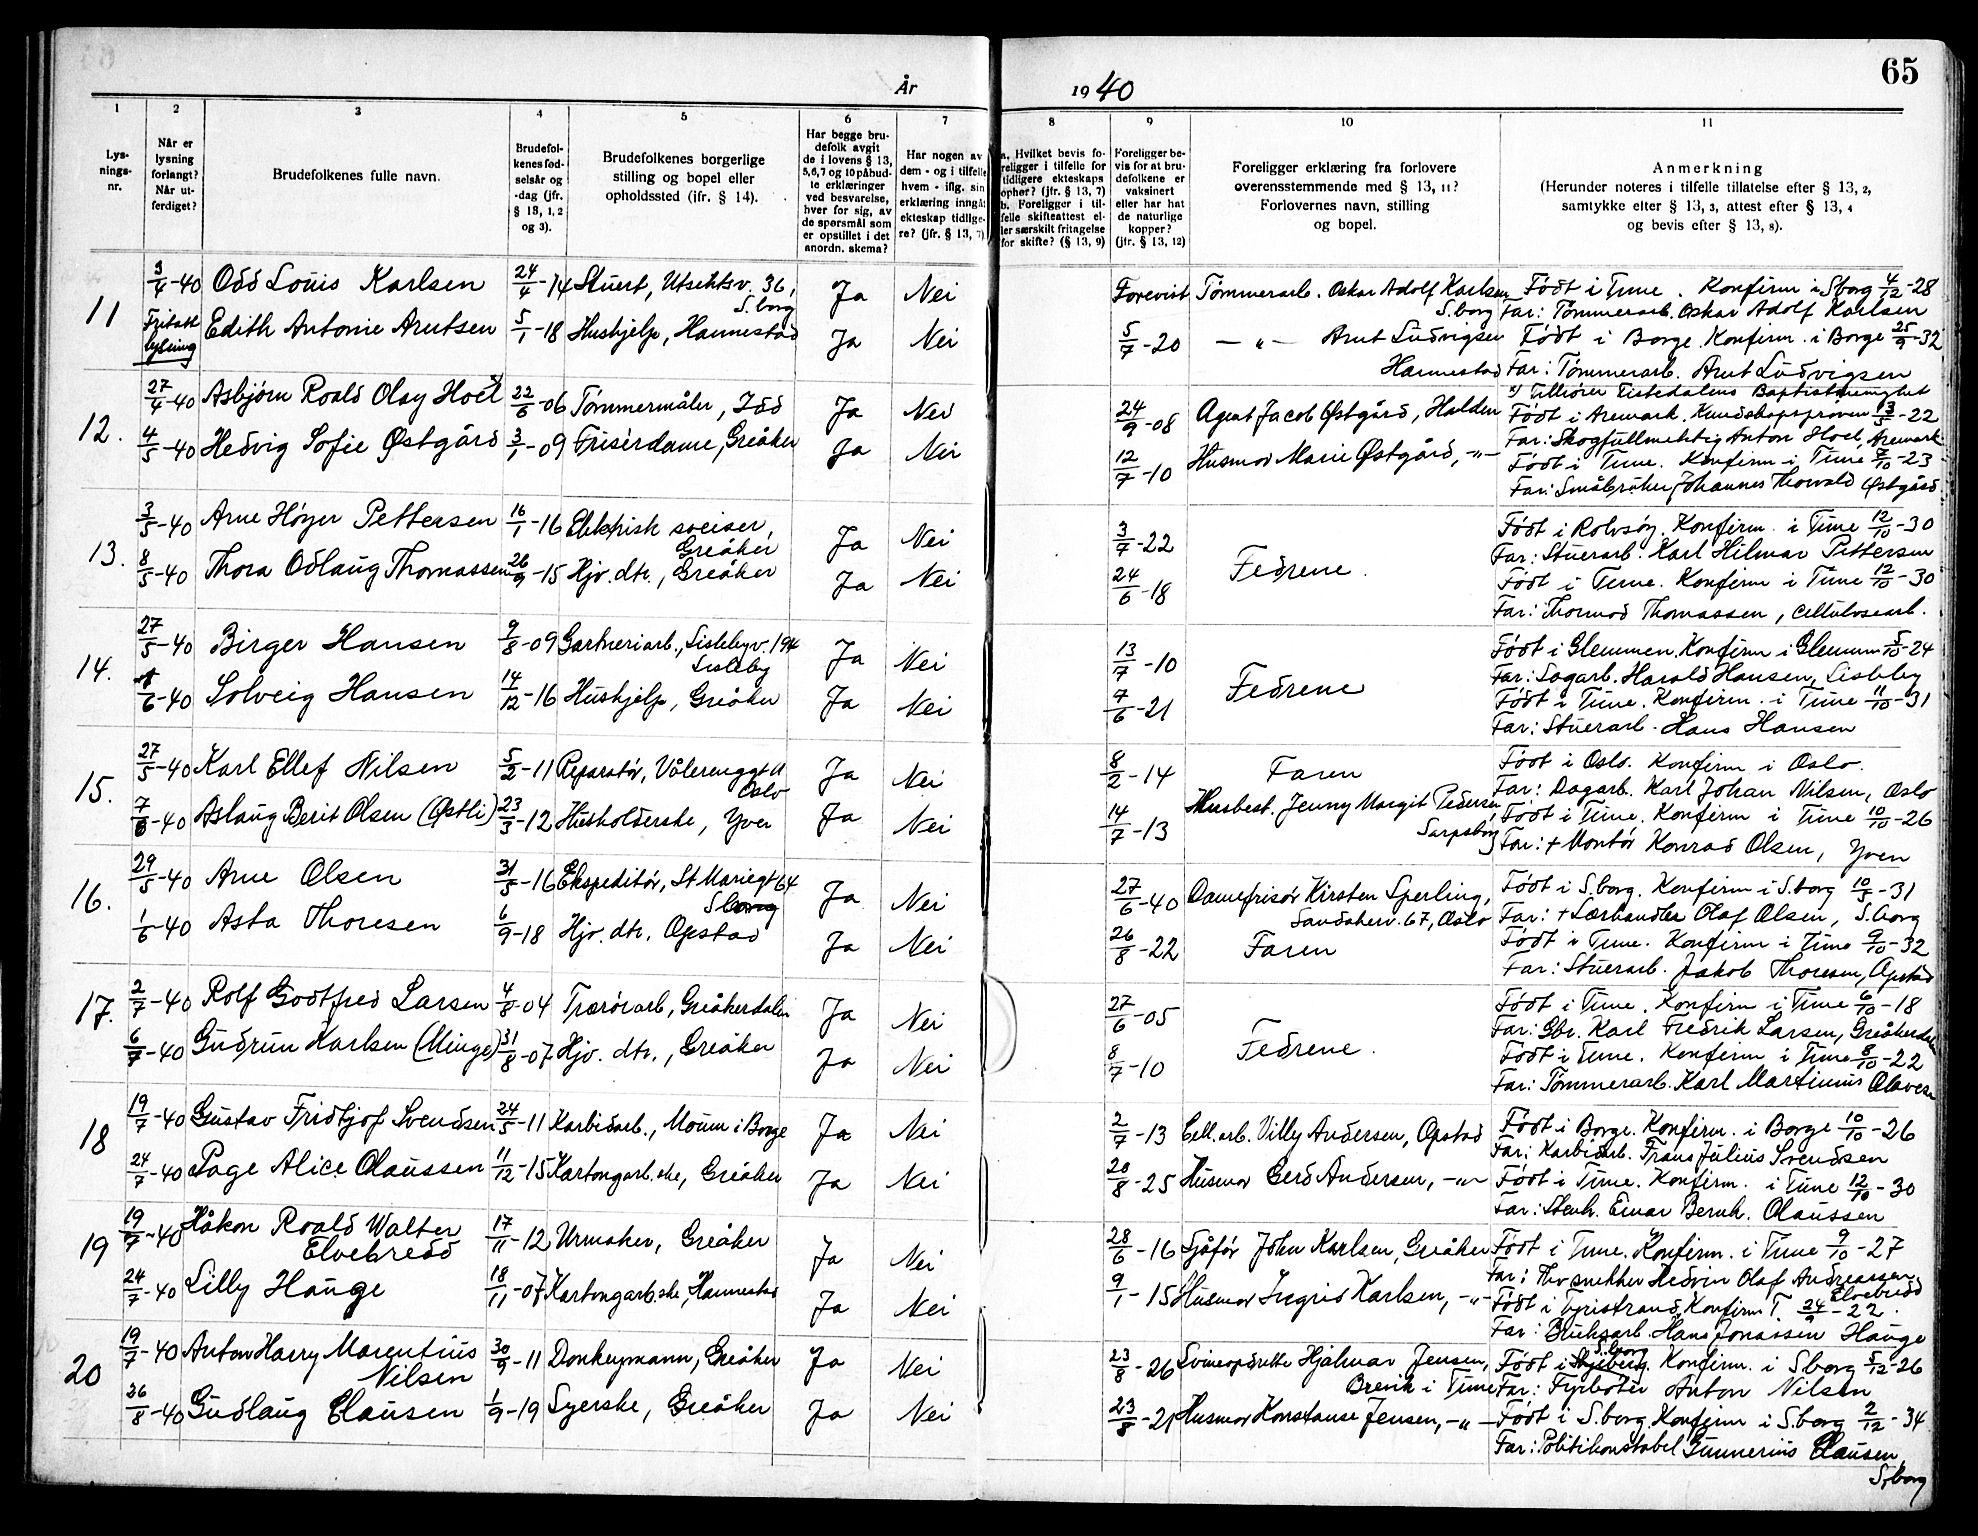 65
År 1940
1 2 3 4 5 6 7 8 9 10 11
Lys-
nings-
nr.
Når er
lysning
forlangt?
Når ut-
ferdiget?
Brudefolkenes fulle navn.
Brudefol-
kenes fød-
selsår og
-dag (jfr.
§ 13, 1, 2
og 3).
Brudefolkenes borgerlige
stilling og bopel eller
opholdssted (jfr. § 14).
Har begge bru-
defolk avgit
de i lovens § 13,
5,6,7 og 10 påbud-
te erklæringer
ved besvarelse,
hver for sig, av
de spørsmål som
er opstillet i det
anordn. skema?
Har nogen av
dem - og i tilfelle
hvem - iflg. sin
erklæring inngåt
ekteskap tidlige-
re? (jfr. § 13, 7)
a. Hvilket bevis fo-
religger i tilfelle for
tidligere ekteskaps
ophør? (jfr. § 13, 7)
b. Foreligger i til-
felle skifteattest el-
ler særskilt fritagelse
for skifte? (§ 13, 9)
Foreligger be-
vis for at bru-
defolkene er
vaksinert
eller har hat
de naturlige
kopper?
(jfr. § 13, 12)
Foreligger erklæring fra forlovere
overensstemmende med § 13, 11?
Forlovernes navn, stilling
og bopel.
Anmerkning
(Herunder noteres i tilfelle tillatelse efter § 13, 2,
samtykke efter § 13, 3, attest efter § 13, 4
og bevis efter § 13, 8).
11 3/4-40 Odd Louis Karlsen 24/4-14 Stuert, Utsiktsv. 36, S.borg Ja Nei Forevist Tømmerarb. Oskar Adolf Karlsen S.borg Født i Tune. Konfirm i S.borg 4/12-28
Far: Tømmerarb. Oskar Adolf Karlsen
Fritatt lysning Edith Antonie Arntsen 5/1-18 Hushjelp, Hannestad Ja Nei 5/7-20 — " — Arnt Ludvigsen Hannestad Født i Borge. Konfirm. i Borge 25/9-32
Far: Tømmerarb. Arnt Ludvigsen
x) Tilhører Tistedalens Baptistmenighet
12. 27/4-40 Asbjørn Roald Olay Hoel x 22/6-06 Tømmermåler, Idd Ja Nei 24/9-08 Agent Jacob Østgård, Halden Født i Aremark. Kundskapsprøven 13/5-22
Far: Skogfullmektig Anton Hoel, Aremark
4/5-40 Hedvig Sofie Østgård 3/1-09 Frisérdame, Greåker Ja Nei 12/7-10 Husmor Marie Østgård, -"- Født i Tune. Konfirm i Tune 7/10-23
Far: Småbruker Johannes Thorvald Østgård
13. 3/5-40 Arne Høyer Pettersen 16/1-16 Elektrisk sveiser, Greåker Ja Nei 3/7-22 Fedrene. Født i Rolvsøy. Konfirm. i Tune 12/10-30
Far: Stuerarb. Karl Hilmar Pettersen
8/5-40 Thora Odlaug Thomassen 26/9-15 Hjv. dtr., Greåker Ja Nei 24/6-18 Født i Tune. Konfirm i Tune 12/10-30
Far: Thormod Thomassen, cellulosearb.
14. 27/5-40 Birger Hansen 9/8-09 Gartneriarb., Lislebyv. 194 Lisleby Ja Nei 13/7-10 Fedrene Født i Glemmen. Konfirm i Glemmen 5/10-24
Far: Sagarb. Harald Hansen, Lisleby
/6-40 Solveig Hansen 14/12-16 Hushjelp, Greåker Ja Nei 7/6-21 Født i Tune. Konfirm. i Tune 11/10-31
Far: Stuerarb. Hans Hansen
15. 27/5-40 Karl Ellef Nilsen 5/2-11 Reparatør, Vålerenggt 11 Oslo Ja Nei 8/2-14 Faren Født i Oslo. Konfirm i Oslo.
Far: Dagarb. Karl Johan Nilsen, Oslo
7/6-40 Aslaug Berit Olsen (Østli) 23/3-12 Husholderske, Yven Ja Nei 14/7-13 Husbest. Jenny Margit Pedersen Sarpsborg Født i Tune. Konfirm i Tune 10/10-26
Far: + Montør Konrad Olsen, Yven
16. 29/5-40 Arne Olsen 31/5-16 Ekspeditør, St Mariegt 64 S.borg Ja Nei 27/6-40 Damefrisør Kirsten Sperling, Sandakerv. 67, Oslo Født i S.borg. Konfirm i S.borg 10/5-31
Far: + Lærhandler Olaf Olsen, S.borg
1/6-40 Asta Thoresen 6/9-18 Hjv. dtr. Opstad Ja Nei 26/8-22 Faren Født i Tune. Konfirm i Tune 9/10-32
Far: Stuerarb. Jakob Thoresen, Opstad
17. 2/7-40 Rolf Godtfred Larsen 4/8-04 Rørarb, Greåkerdalen Ja Nei 27/6-05 Fedrene. Født i Tune. Konfirm i Tune 6/10-18
Far: Gbr. Karl Fredrik Larsen, Greåkerdalen
6/7-40 Gudrun Karlsen (Minge) 31/8-07 Hjv. dtr., Greåker Ja Nei 8/7-10 Født i Tune. Konfirm i Tune 8/10-22
Far: Tømmerarb. Karl Martinius Olavesen
18 19/7-40 Gustav Fridtjof Svendsen 24/5-11 Karbidarb., Moum i Borge Ja Nei 2/7-13 Cell.arb. Villy Andersen, Opstad Født i Borge. Konfirm. i Borge 10/10-26
Far: Karbidarb. Frans Julius Svendsen
24/7-40 Page Alice Olaussen 11/12-15 Kartongarb.ske, Greåker Ja Nei 20/8-25 Husmor Gerd Andersen, -"- Født i Tune. Konfirm. i Tune 12/10-30
Far: Stenh. Einar Bernh. Olaussen
19 19/7-40 Håkon Roald Walter Elvebredd 17/11-12 Urmaker, Greåker Ja Nei 28/6-16 Sjåfør John Karlsen, Greåker Født i Tune. Konfirm. i Tune 9/10-27
Far: Hv snekker Hedvin Olaf Andreassen Elvebredd
24/7-40 Lilly Hauge 18/11-07 Kartongarb.ske, Hannestad Ja Nei 9/1-15 Husmor Ingrid Karlsen, -"- Født i Tyristrand, Konfirm T. 24/9-22.
Far: Bruksarb. Hans Jonassen Hauge
20 19/7-40 Anton Harry Marentius Nilsen 30/9-11 Donkeymann, Greåker Ja Nei 23/8-26 Svineopdrette Hjalmar Jensen, Brevik i Tune Født i Skjeberg S.borg. Konfirm. i S.borg 5/12-26
Far: Fyrbøter Anton Nilsen
26/8-40 Gudlaug Clausen 1/9-19 Syerske, Greåker Ja Nei 23/8-21 Husmor Konstanse Jensen, -"- Født i S.borg. Konfirm i S.borg 2/12-34
Far: Politikonstabel Gunnerius Clausen,
S.borg